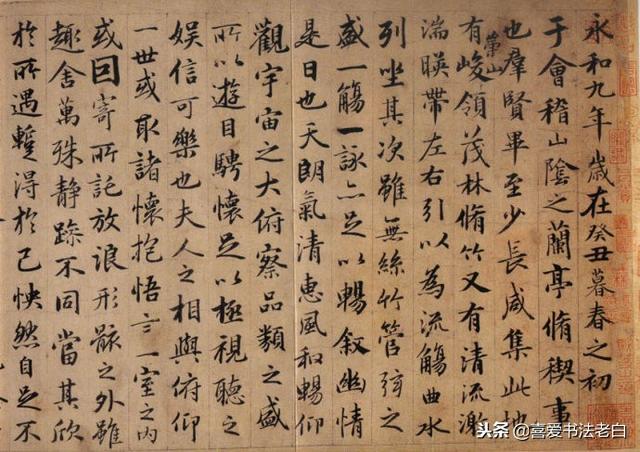 永和九年歳在癸丑暮春之初
于會稽山陰之蘭亭脩稧事
也羣賢畢至少長咸集此地
有崇山峻領茂林脩竹又有清流激
湍暎帶左右引以為流觴曲水
列坐其次雖無絲竹管弦之
盛一觴一詠亦足以暢叙幽情
是日也天朗氣清惠風和暢仰
觀宇宙之大俯察品類之盛
所以遊目騁懷足以極視聽之
娱信可樂也夫人之相與俯仰
一世或取諸懷抱悟言一室之内
或因寄所託放浪形骸之外雖
趣舍萬殊静躁不同當其欣
於所遇蹔得於己怏然自足不
头条 @喜爱书法老白